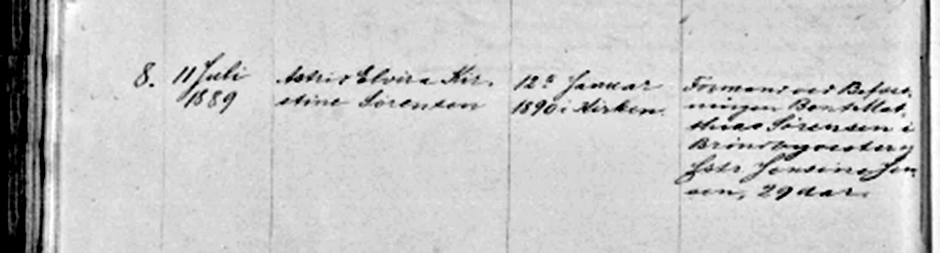 8. 11 Juli
1889
Astrid Elvira Kir-
stine Sørensen
12te Januar
1890 i Kirken.
Formand ved Befæst-
ningen Bent Mat-
thias Sørensen i
Brøndbyvester og
Hstr. Jensine Jen-
sen, 29 Aar.